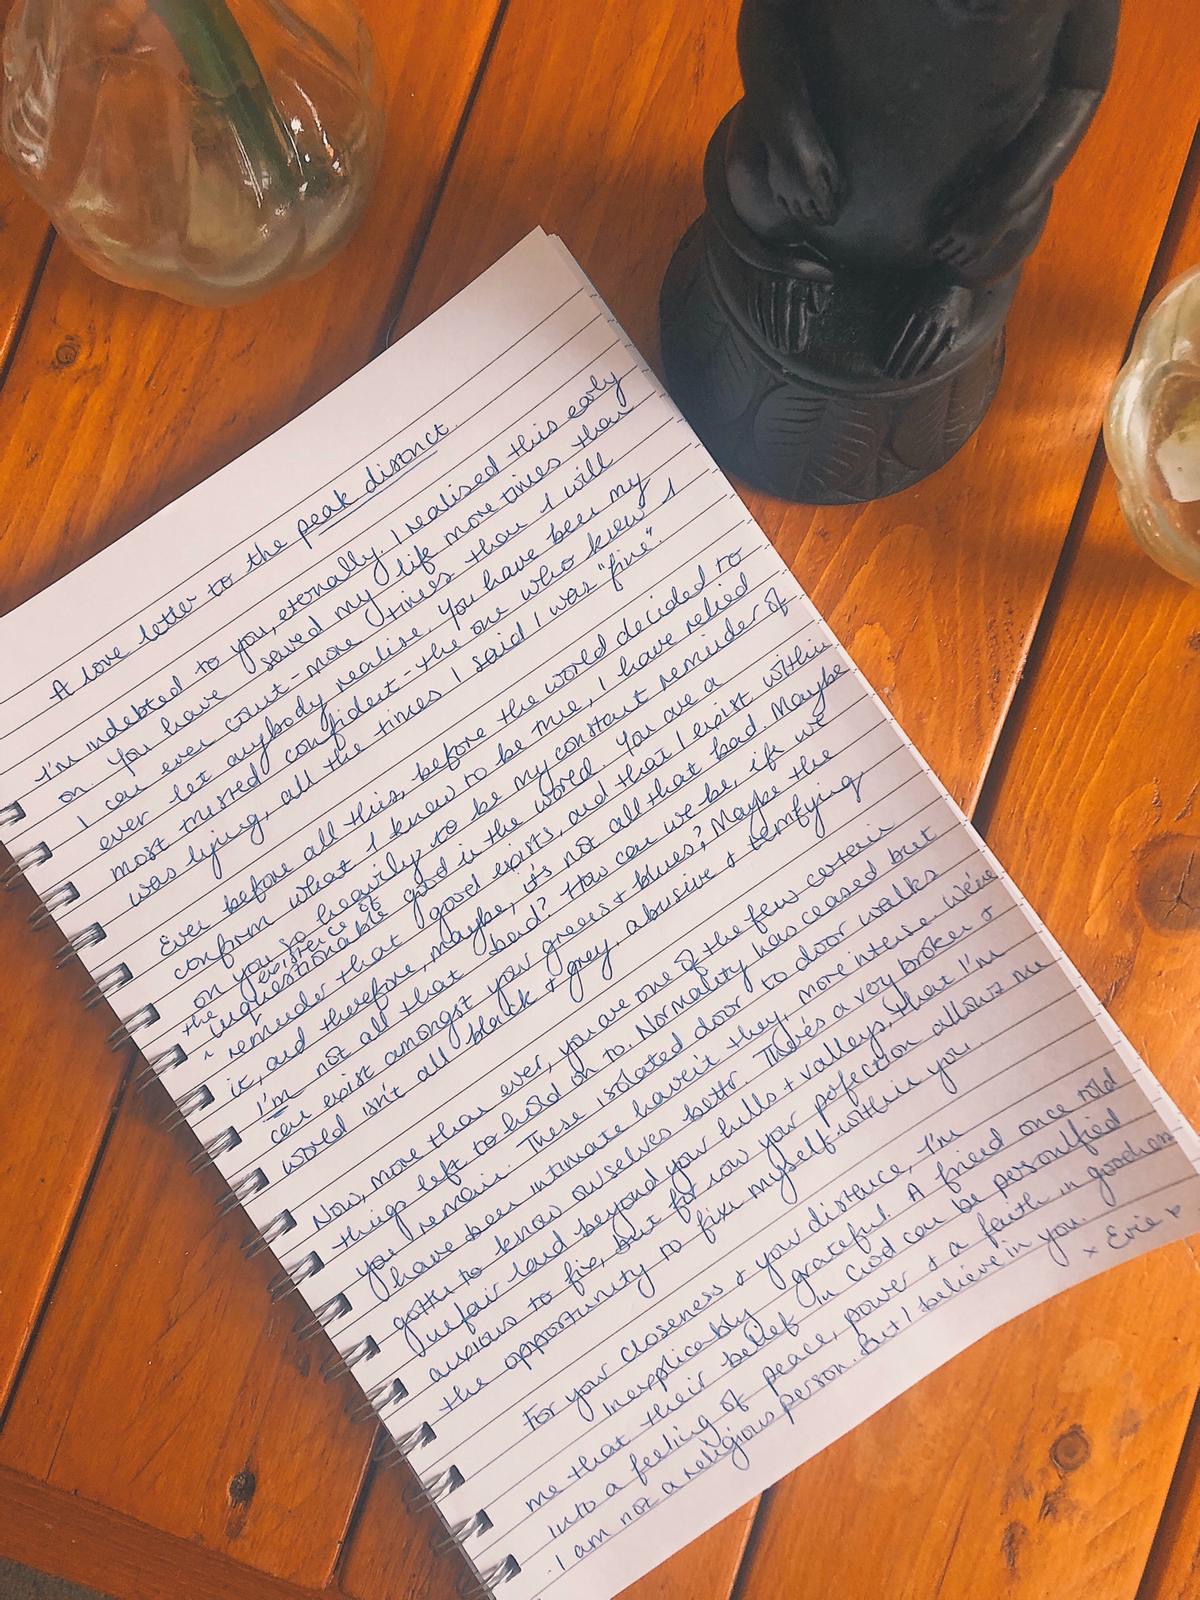 A love letter to the peak district.
I'm indebted to you, eternally. I realised this early
on. You have saved my life more times than
I can ever count - more times than I will
ever let anybody realise. You have been my
most trusted confident - the one who knew I
was lying, all the times I said I was "fine".
Even before all this, before the world decided to
confirm what I knew to be true, I have relied
on you so heavily to be my constant reminder of
the existence of
unquestionable good in the world. You are a
reminder that good exists, and that I exist within
it, and therefore, maybe, it's not all that bad. Maybe
I'm not all that bad? How can we be, if we
can exist amongst your greens + blues? Maybe the
world isn't all black + grey, abusive + terrifying
Now, more than ever, you are one of the few certain
things left to hold on to. Normality has ceased but
you remain. These isolated door to door walks
have been intimate haven't they, more intense. We've
gotten to know ourselves better. There's a very broken +
unfair land beyond your hills + valleys, that I'm
anxious to fix, but for now your perfection allows me
the opportunity to fix myself within you.
For your closeness + your distance, I'm
inexplicably grateful. A friend once told
me that their belief in God can be personified
into a feeling of peace, power + a faith in goodness
I am not a religious person. But I believe in you.
x Evie ♥